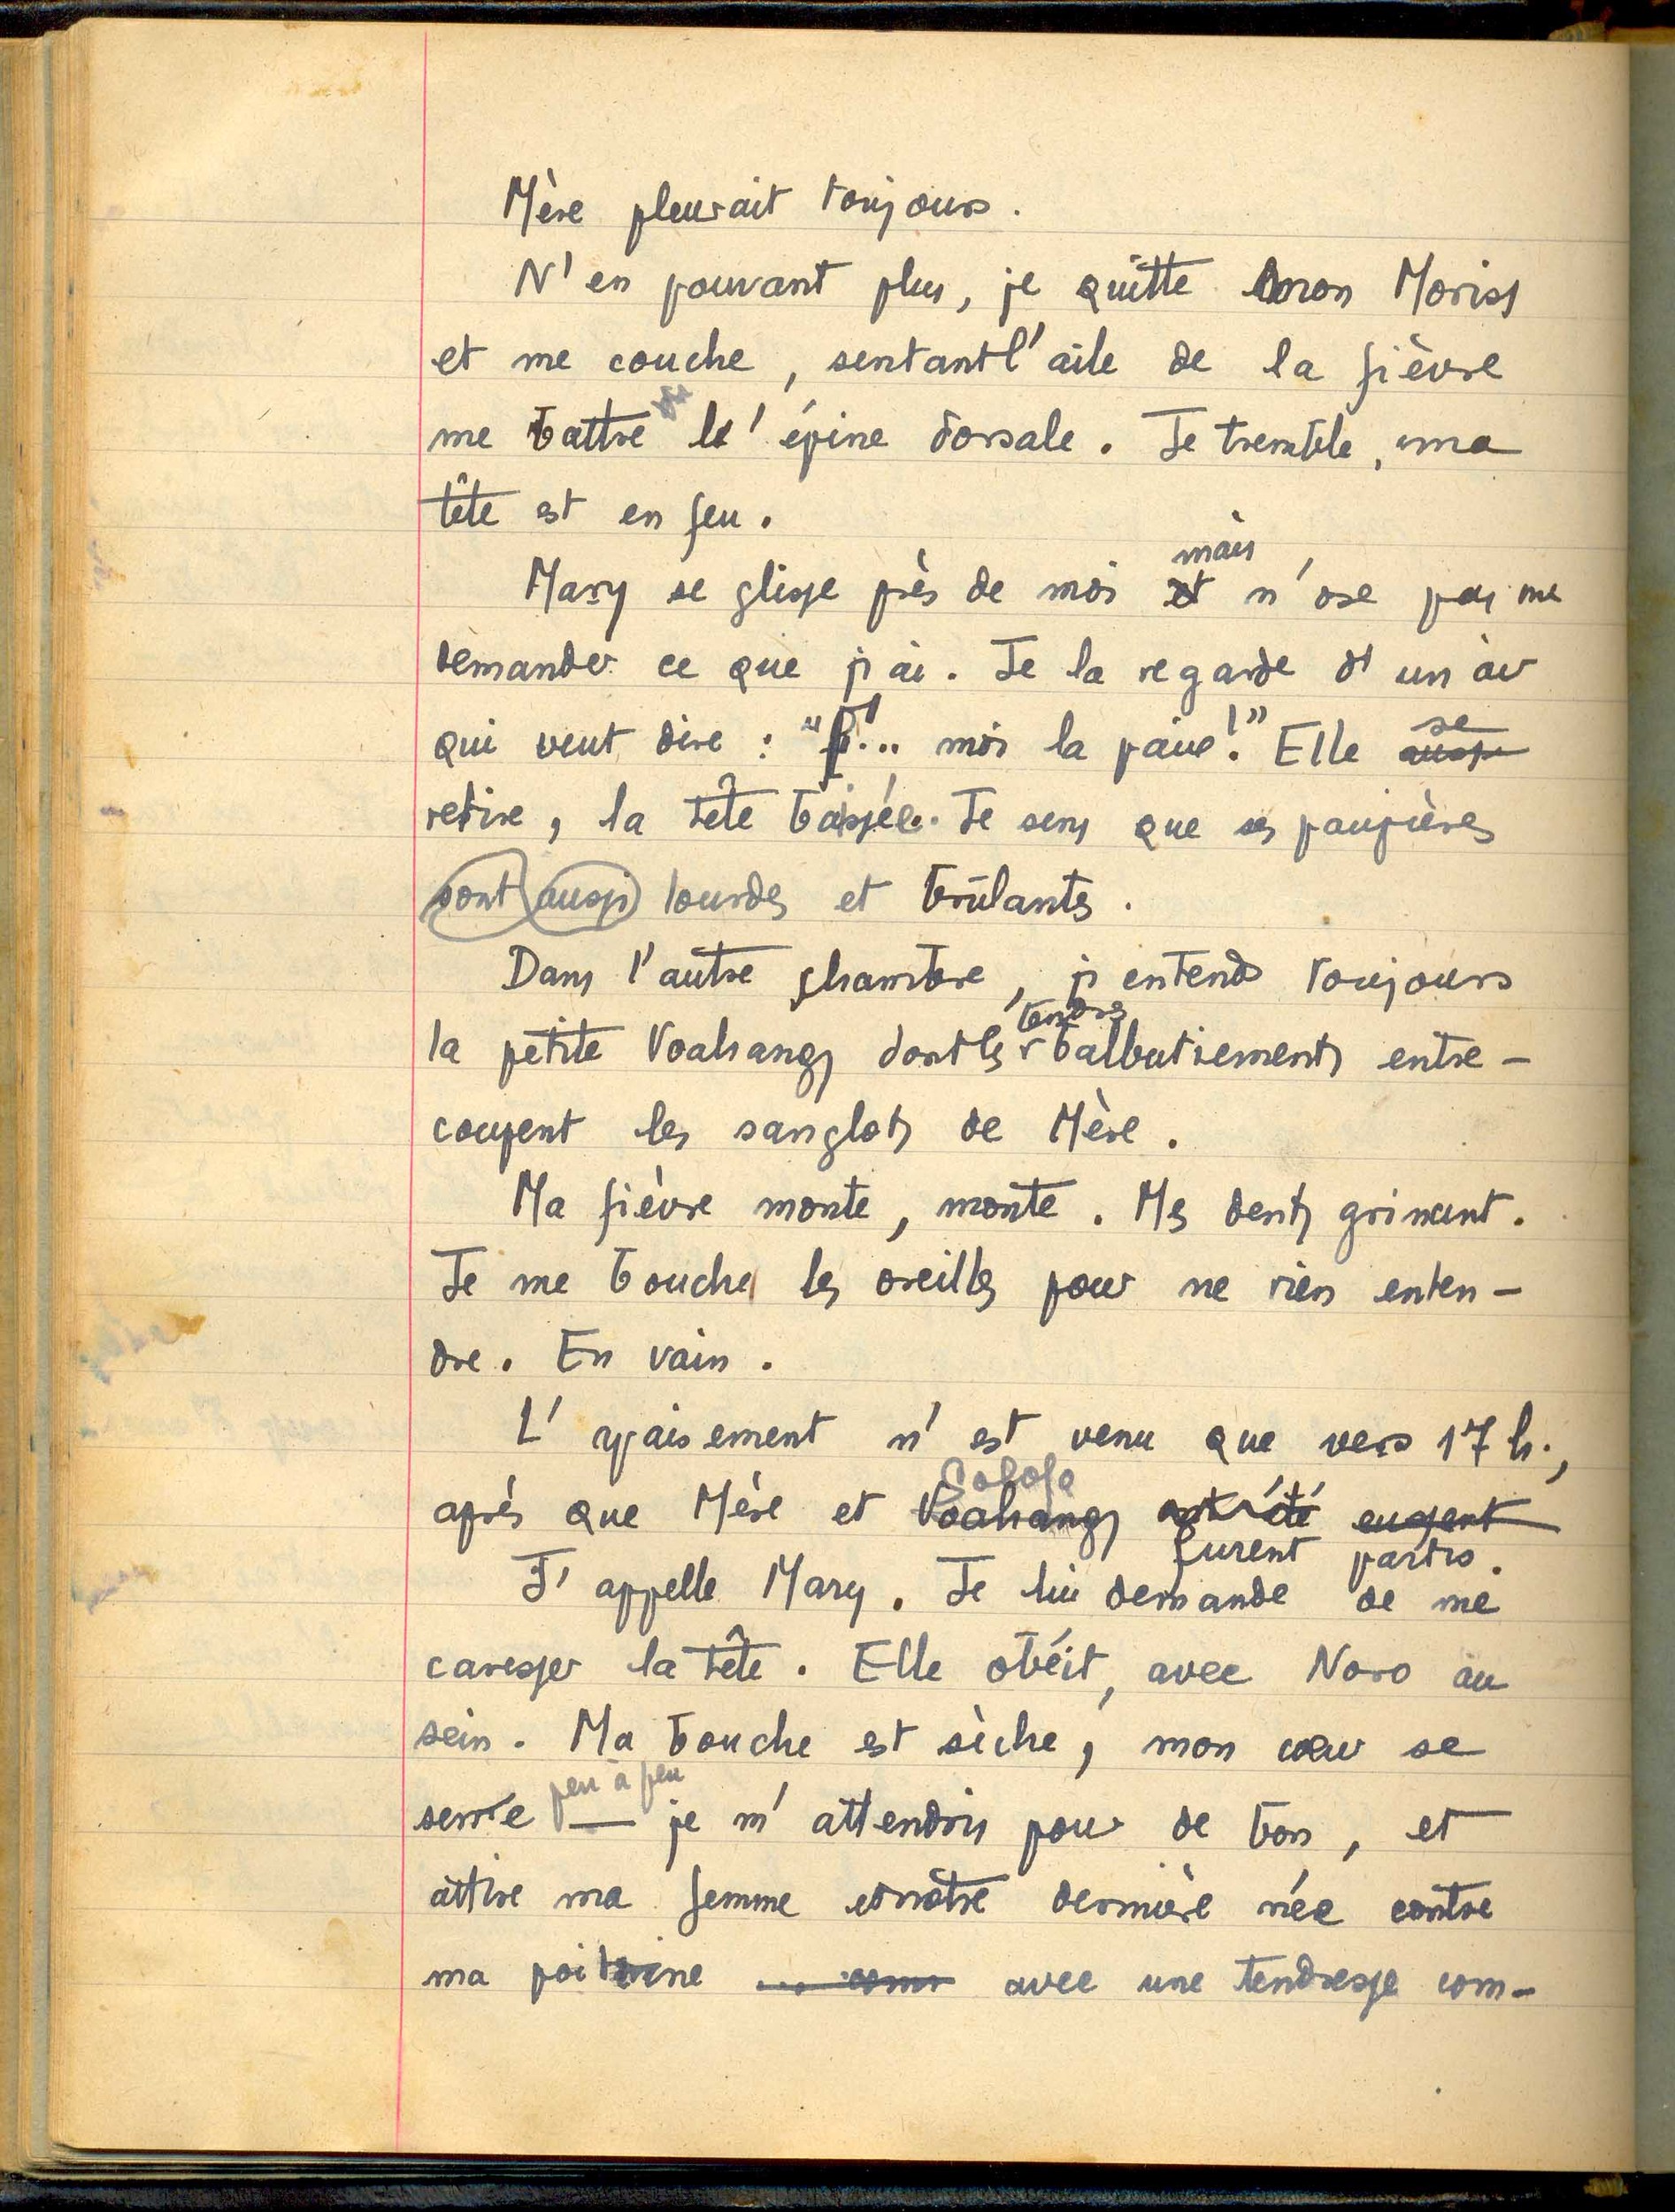 Mère pleurait toujours.
N'en pouvant plus, je quitte mon Moriss
et me couche, sentant l'aile de la fièvre
me battre l'épine dorsale. Je tremble, ma
tête est en feu.
mais
Mary se glisse près de moi et n'ose pas me
demander ce que j'ai. Je la regarde d'un air
qui veut dire : "F... moi la paix!" Elle aussi se
retire, la tête baissée. Je sens que ses paupières
sont aussi lourdes et brûlantes.
Dans l'autre chambre, j'entends toujours
tendres
la petite Voahangy dont les balbutiements entre-
coupent les sanglots de Mère.
Ma fièvre monte, monte. Mes dents grincent.
Je me bouche les oreilles pour ne rien enten-
dre. En vain.
L'apaisement n'est venu que vers 17 h.,
Solofo
après que Mère et Voahangy ont été eussent
furent partis.
J'appelle Mary. Je lui demande de me
caresser la tête. Elle obéit, avec Noro au
sein. Ma bouche est sèche, mon cœur se
peu à peu
serre — je m'attendris pour de bon, et
attire ma femme et notre dernière née contre
ma poitrine ... comr avec une tendresse com-